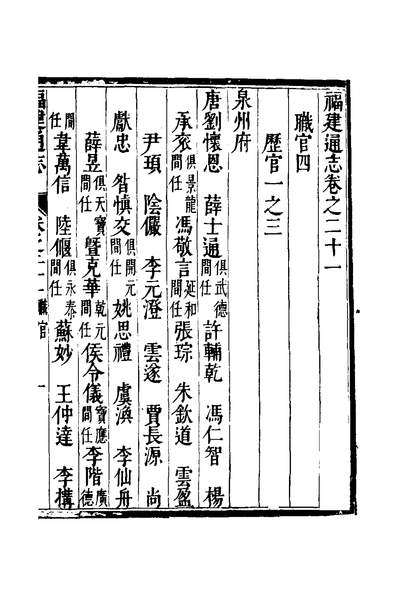 福建通志卷之二十一
職官四
歷官一之三
泉州府
唐劉懷恩 薛士通俱武德間任 許輔乾 馮仁智 楊
承衮俱景龍間任 馮敬言延和間任 張琮 朱欽道 雲盈
尹頊 陰儼 李元澄 雲遂 賈長源 尚
獻忠 昝慎交俱開元間任 姚思禮 虞渙 李仙舟
薛昱俱天寶間任 暨克華乾元間任 侯令儀寶應間任 李階廣德
間任 韋萬信 陸偃俱永泰間任 蘇妙 王仲達 李構
福建通志 卷之二十一 職官 一